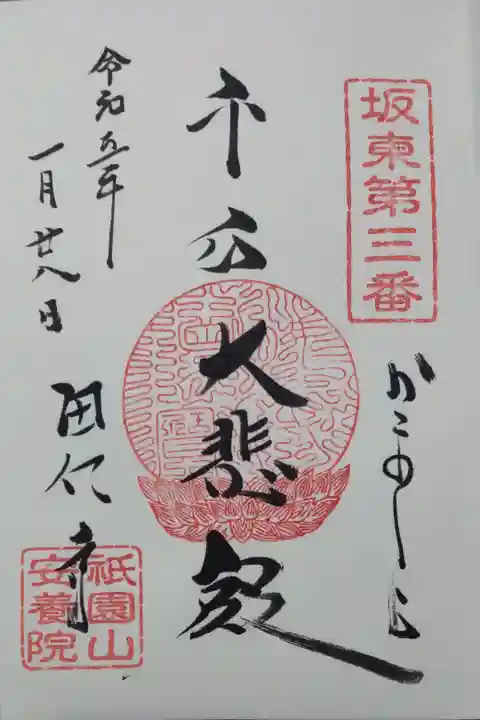 坂東第三番
千手大悲殿
令和五年
一月廿八日
田代寺
祇園山
安養院